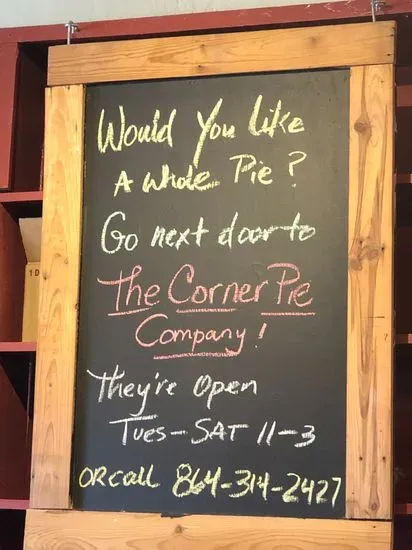 Would You like
A whole Pie?
Go next door to
The Corner Pie
Company!
They're Open
Tues-SAT 11-3
OR call 864-314-2427